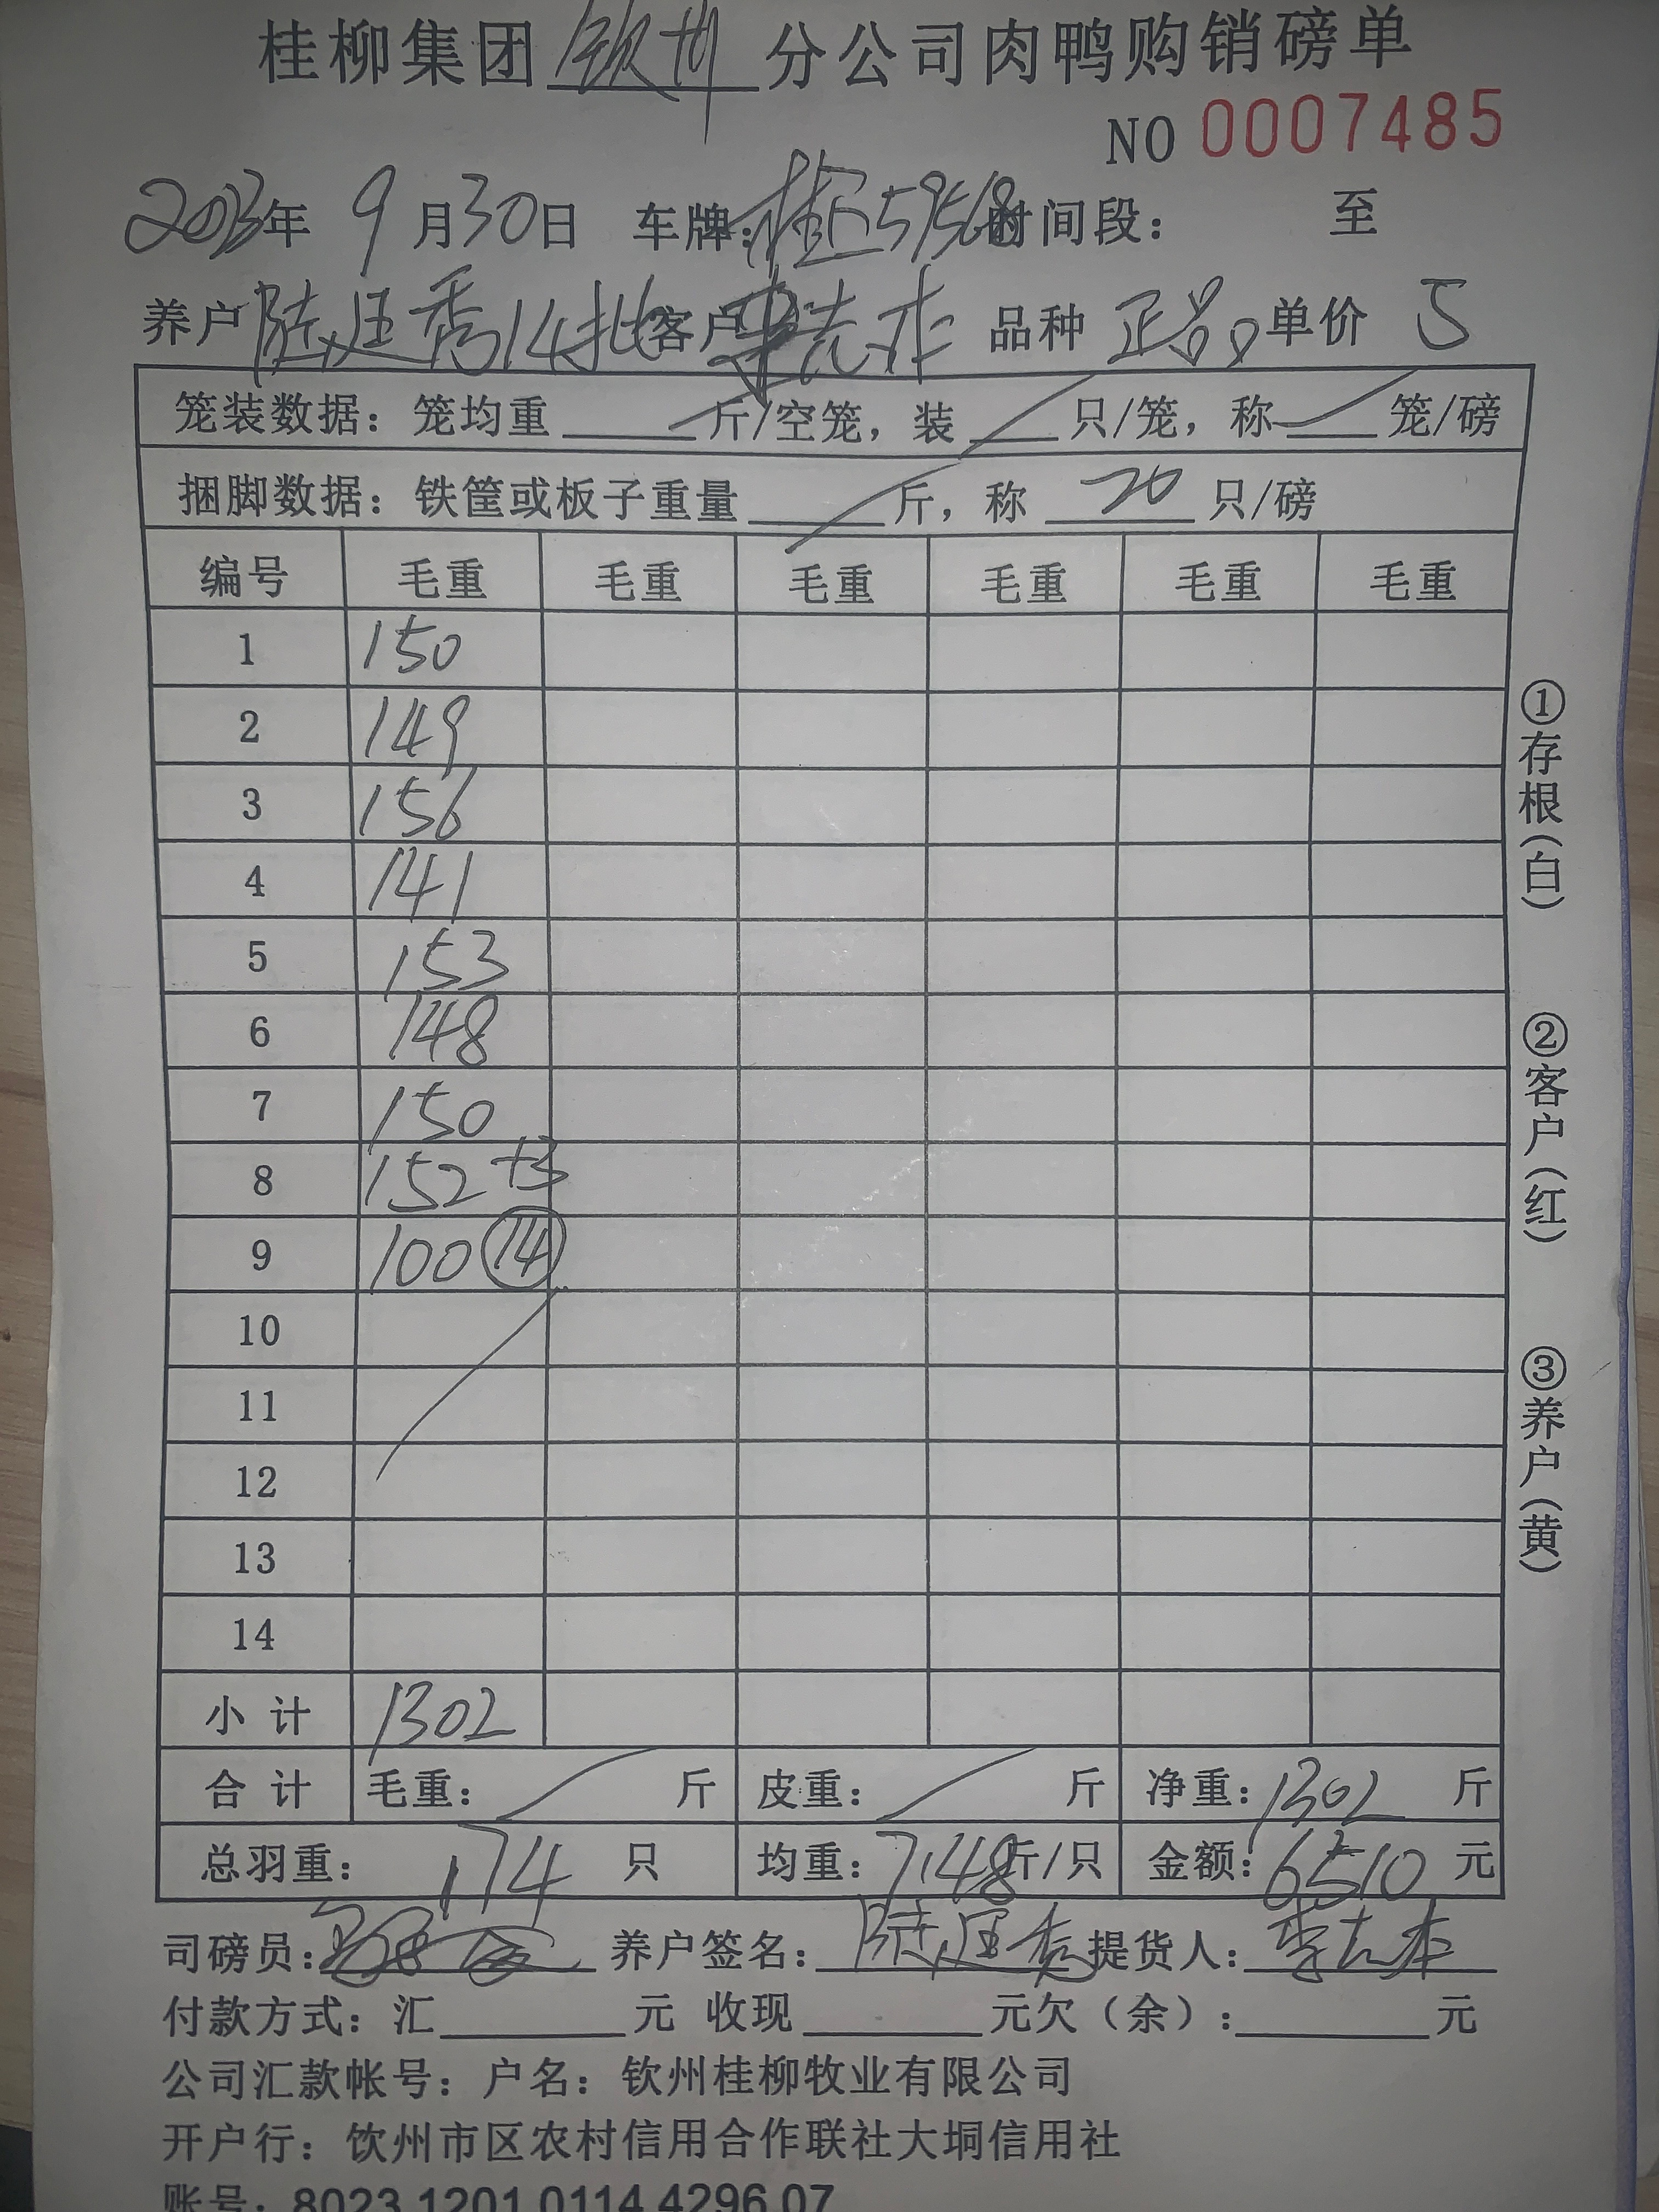 桂柳集团钦州分公司肉鸭购销磅单
NO 0007485
2023年 9 月30日 车牌: 59568时间段: 至
养户陆廷秀14批客户 品种 正品 单价 5
笼装数据: 笼均重 斤/空笼, 装 只/笼, 称 笼/磅
捆脚数据: 铁筐或板子重量 斤, 称 20 只/磅
编号 毛重 毛重 毛重 毛重 毛重 毛重
1 150
2 149
3 156
4 141
5 153
6 148
7 150
8 152 +3
9 100 14
10
11
12
13
14
小计 1302
合计 毛重: 斤 皮重: 斤 净重: 1302 斤
总羽重: 174 只 均重: 7.48斤/只 金额: 6510 元
司磅员: 养户签名: 陆廷秀 提货人:
付款方式: 汇 元 收现 元欠(余): 元
公司汇款帐号: 户名: 钦州桂柳牧业有限公司
开户行: 钦州市区农村信用合作联社大垌信用社
账号: 8023 1201 0114 4296 07
①存根(白)
②客户(红)
③养户(黄)